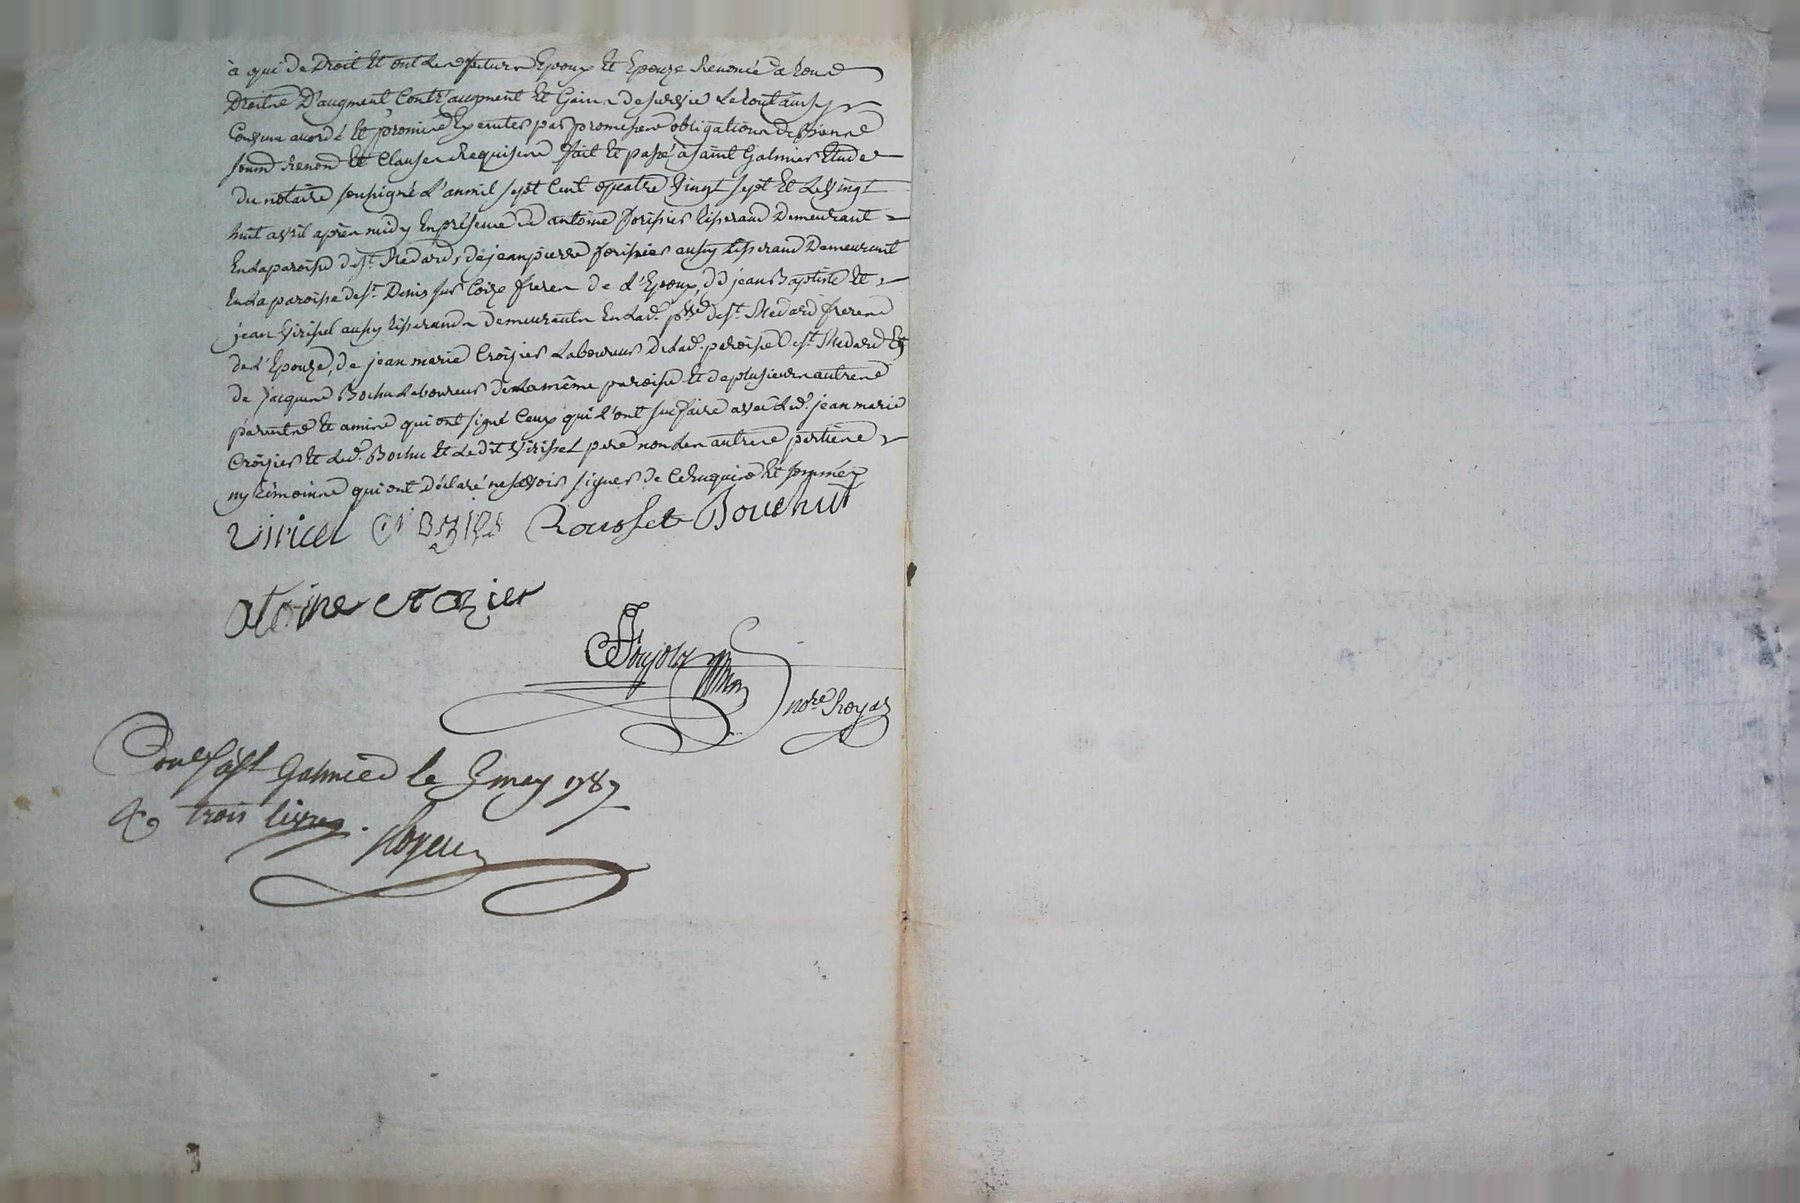 à qui de Droit Et ont lesd. futurs Epoux Et Epouze Renoncé a tous
Droits D'augment Contr'augment Et Gains de survie Le tout ainsy
Convenu accordé Et promis Executer par promesses obligations de Biens
soums Renons Et Clauses Requises fait Et passé à Saint Galmier Etude
du notaire soussigné L'an mil sept Cent quatre Vingt sept Et Le Vingt
huit avril après midy En présence de antoine forissier tisserand Demeurant
En La paroisse de St. Medard, de jean pierre forissier aussy tisserand Demeurant
En La paroisse de St. Denis sur Coize freres de L'Epoux, de jean Baptiste Et
jean Virissel aussy tisserands demeurants En Lad. psse de St. Medard freres
de L'Epouze, de jean marie Croizier Laboureur De Lad. paroisse de St. Medard Et
de Jacques Bochu Laboureur de La même paroisse Et de plusieurs autres
parents Et amis qui ont signé Ceux qui L'ont sus faire avec Led. jean marie
Croizier Et Led. Bochu Et Le dit Virissel pere non Les autres parties
ny témoins qui ont Déclaré ne scavoir signer de Ce Enquis Et sommés
Viricel Rousset Bouchut
atoine crozier
notre Royal
Conlé a St Galmier le 3 may 1787
trois livres.